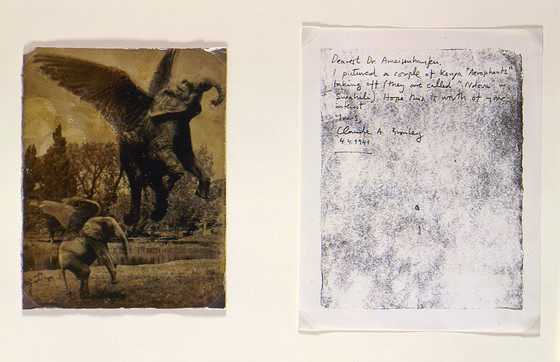 Dearest Dr. Ameisenhaufen,
I pictured a couple of Kenya "Aerophants"
taking off (they are called "Ndovu" in
Swahili) Hope this is worth of your
interest
Yours
Claude A. Bromley
4.4.1941